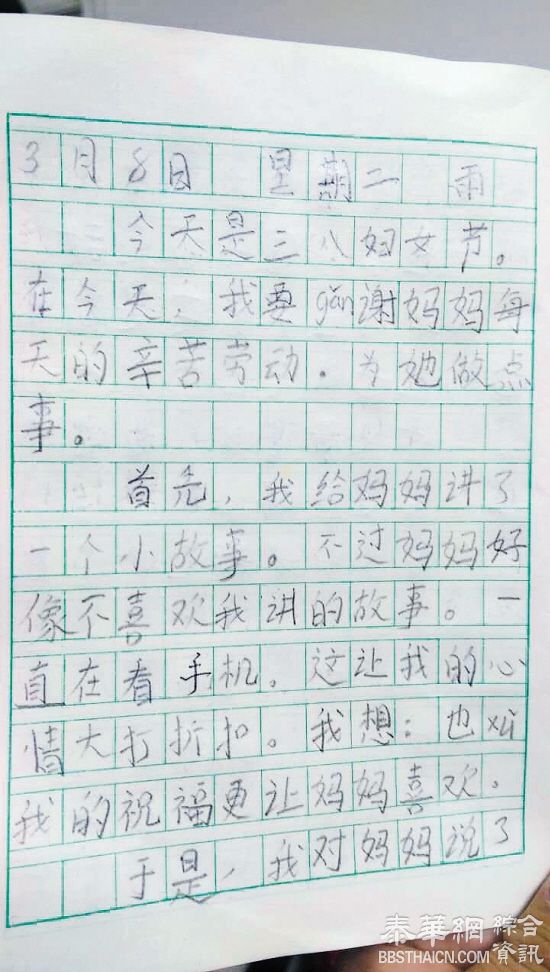 3月8日 星期二 雨
今天是三八妇女节。
在今天，我要gǎn谢妈妈每
天的辛苦劳动．为她做点
事。
首先，我给妈妈讲了
一个小故事。不过妈妈好
像不喜欢我讲的故事。一
直在看手机。这让我的心
情大打折扣。我想：也xǔ
我的祝福更让妈妈喜欢。
于是，我对妈妈说了
泰華網 綜合資訊
BBSTHAICN.COM